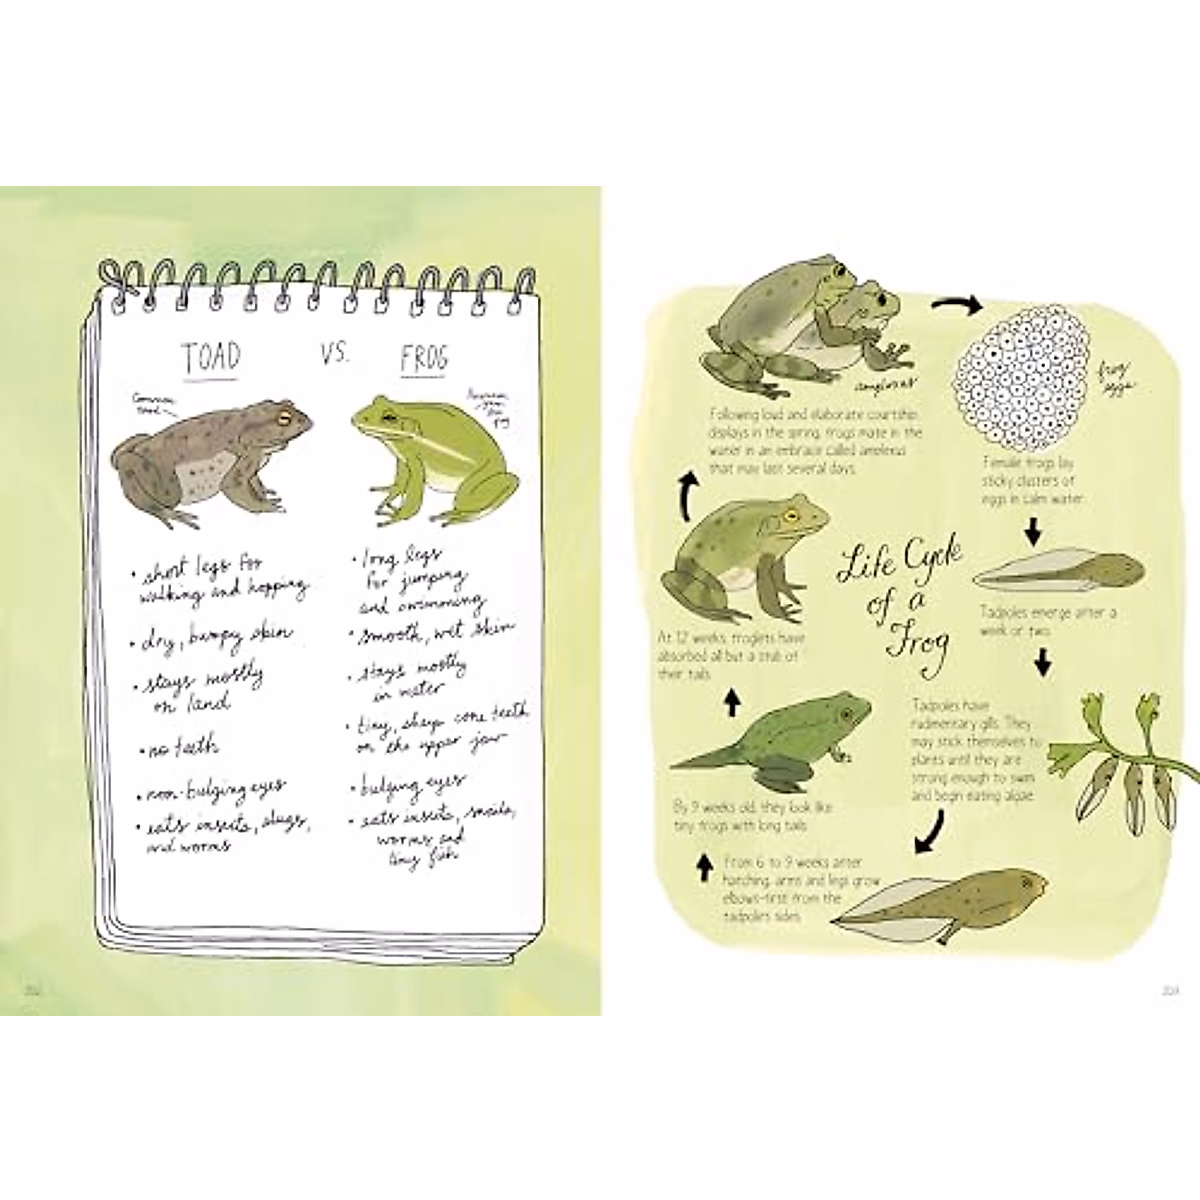 TOAD VS. FROG
Common
toad
American
green
tree
frog
• short legs for
walking and hopping
• dry, bumpy skin
• stays mostly
on land
• no teeth
• non-bulging eyes
• eats insects, slugs,
and worms
• long legs
for jumping
and swimming
• smooth, wet skin
• stays mostly
in water
• tiny, sharp cone teeth
on the upper jaw
• bulging eyes
• eats insects, snails,
worms and
tiny fish
202
amplexus
Following loud and elaborate courtship
displays in the spring, frogs mate in the
water in an embrace called amplexus
that may last several days.
frog
eggs
Female frogs lay
sticky clusters of
eggs in calm water.
Life Cycle
of a
Frog
Tadpoles emerge after a
week or two.
Tadpoles have
rudimentary gills. They
may stick themselves to
plants until they are
strong enough to swim
and begin eating algae.
From 6 to 9 weeks after
hatching, arms and legs grow
elbows-first from the
tadpole's sides.
By 9 weeks old, they look like
tiny frogs with long tails.
At 12 weeks, froglets have
absorbed all but a stub of
their tails.
203